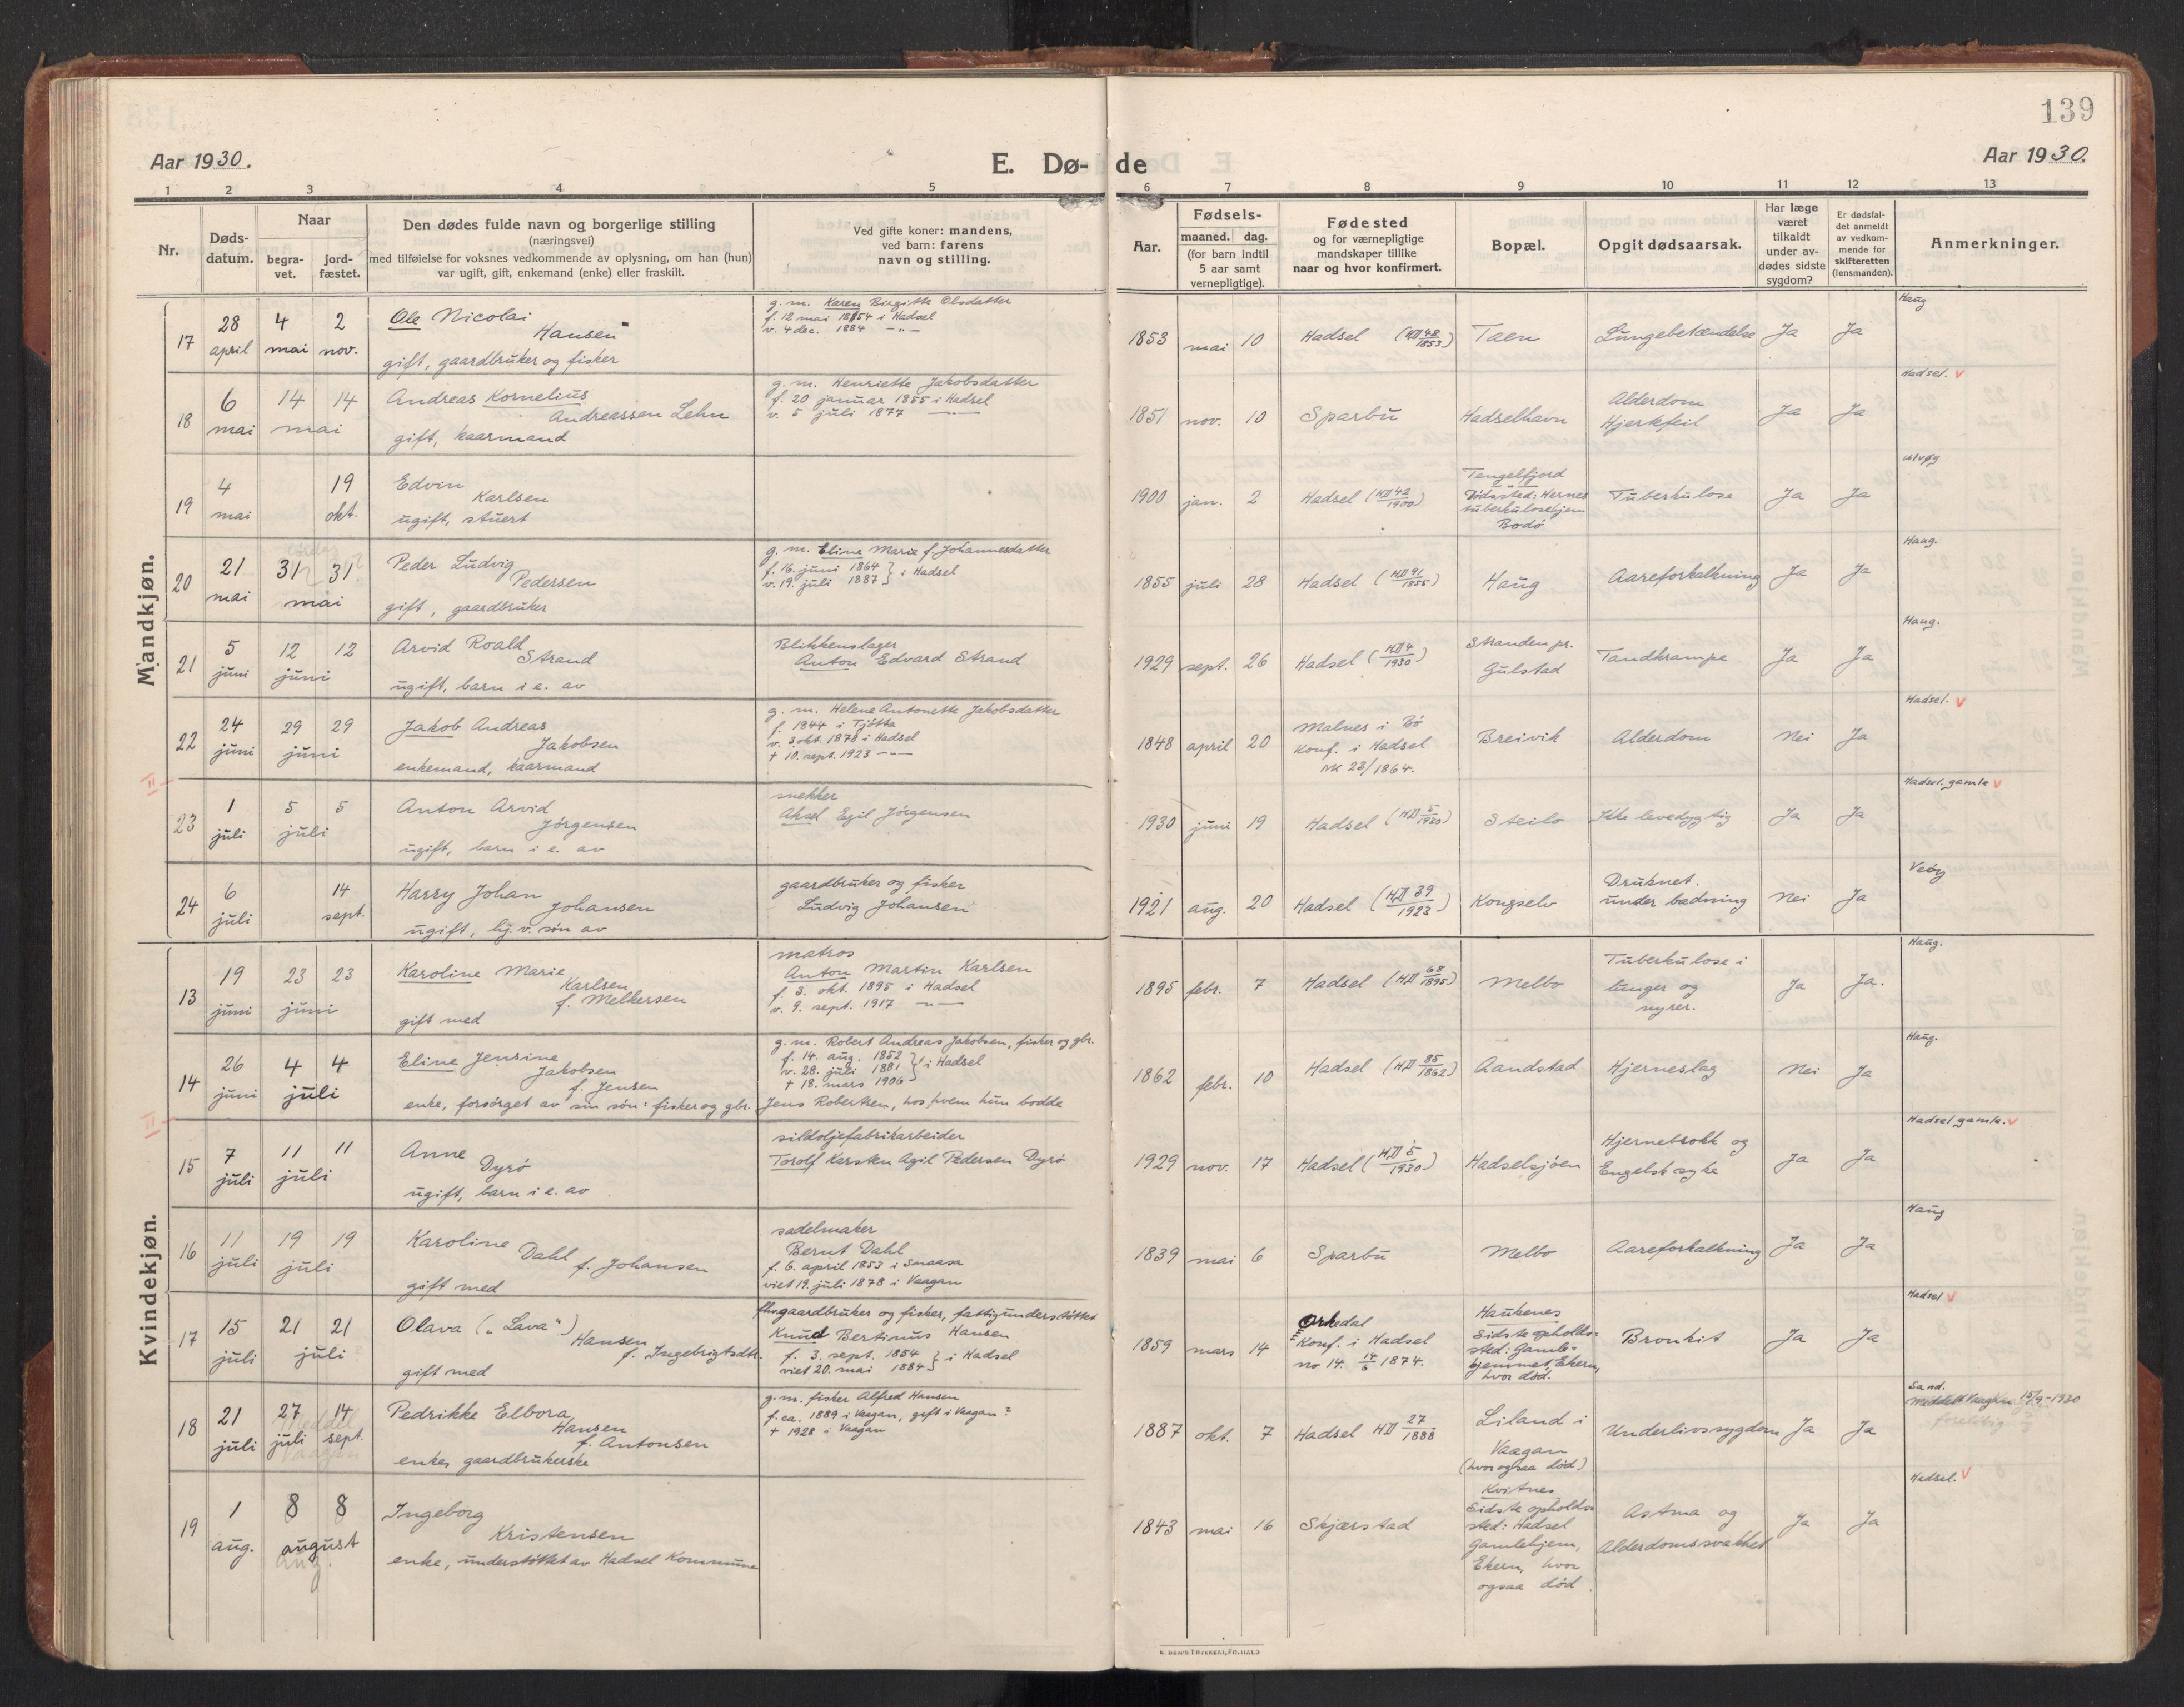 139
Aar 1930.
E. Dø-de
Aar 1930.
1 2 3 4 5 6 7 8 9 10 11 12 13
Nr.
Døds-
datum.
Naar
begra-
vet.
jord-
fæstet.
Den dødes fulde navn og borgerlige stilling
(næringsvei)
med tilføielse for voksnes vedkommende av oplysning, om han (hun)
var ugift, gift, enkemand (enke) eller fraskilt.
Ved gifte koner: mandens,
ved barn: farens
navn og stilling.
Aar.
Fødsels-
maaned. dag.
(for barn indtil
5 aar samt
vernepligtige).
Fødested
og for værnepligtige
mandskaper tillike
naar og hvor konfirmert.
Bopæl.
Opgit dødsaarsak.
Har læge
været
tilkaldt
under av-
dødes sidste
sygdom?
Er dødsfal-
det anmeldt
av vedkom-
mende for
skifteretten
(lensmanden).
Anmerkninger.
Mandkjøn.
17
28
april
4
mai
2
nov.
Ole Nicolai
Hansen
gift, gaardbruker og fisker
g. m. Karen Birgitte Olsdatter
f. 12 mai 1854 i Hadsel
v. 4 dec. 1884 -"-
1853 mai 10
Hadsel (MII 48/1853)
Taen
Lungebetændelse
Ja
Ja
Haug
18
6
mai
14 14
mai
Andreas Kornelius
Andreassen Lehn
gift, kaarmand
g. m. Henriette Jakobsdatter
f. 20 januar 1855 i Hadsel
v. 5 juli 1877 -"-
1851 nov. 10
Sparbu
Hadselhavn
Alderdom
Hjerkfeil
Ja
Ja
Hadsel. v
19
4
mai
19
okt.
Edvin
Karlsen
ugift, stuert
1900 jan. 2
Hadsel (MII 42/1900)
Tengelfjord
Dødssted: Hernes
tuberkulosehjem
Bodø
Tuberkulose
Ja
Ja
20
21
mai
31 31
mai
Peder Ludvig
Pedersen
gift, gaardbruker
g. m. Eline Marie f. Johannesdatter
f. 16. juni 1864
v. 19. juli 1887 } i Hadsel
1855 juli 28
Hadsel (MII 91/1855)
Haug
Aareforkalkning
Ja
Ja
Haug.
21
5
juni
12 12
juni
Arvid Roald
Strand
ugift, barn i e. av
Blikkenslager
Anton Edvard Strand
1929 sept. 26
Hadsel (MII 4/1930)
Stranden pr.
Gulstad
Tandkrampe
Ja
Ja
Haug.
22
24
juni
29 29
juni
Jakob Andreas
Jakobsen
enkemand, kaarmand
g. m. Helene Antonette Jakobsdatter
f. 1844 i Tjøtta
v. 3 okt. 1878 i Hadsel
+ 10. sept. 1923 -"-
1848 april 20
Malnes i Bø
Konf. i Hadsel
Mk 28/1864.
Breivik
Alderdom
Nei
Ja
Hadsel. v
II
23
1
juli
5 5
juli
Anton Arvid
Jørgensen
ugift, barn i e. av
snekker
Aksel Egil Jørgensen
1930 juni 19
Hadsel (MII 5/1930)
Steilo
Ikke levedygtig
Ja
Ja
Hadsel. gamle v
24
6
juli
14
sept.
Harry Johan
Johansen
ugift, hj. v. søn av
gaardbruker og fisker
Ludvig Johansen
1921 aug. 20
Hadsel (MII 39/1923)
Kongselv
Druknet.
under badning
Nei
Ja
Kvindekjøn.
13
19
juni
23 23
juni
Karoline Marie
Karlsen
f. Melkersen
gift med
matros
Anton Martin Karlsen
f. 3. okt. 1895 i Hadsel
v. 9. sept. 1917 -"-
1895 febr. 7
Hadsel (MII 68/1895)
Melbo
Tuberkulose i
lunger og
nyrer.
Ja
Ja.
Haug.
14
26
juni
4 4
juli
Eline Jensine
Jakobsen
f. Jensen
enke, forsørget av sin søn: fisker og gbr. Jens Robertsen, hos hvem hun bodde
g. m. Robert Andreas Jakobsen, fisker og gbr.
f. 14. aug. 1852
v. 28. juli 1881 } i Hadsel
+ 18. mars 1906
1862 febr. 10
Hadsel (MII 85/1862)
Aandstad
Hjerneslag
Nei
Ja
Haug.
II
15
7
juli
11 11
juli
Anne
Dyrø
ugift, barn i e. av
sildoljefabrikarbeider
Torolf Karsten Agil Pedersen Dyrø
1929 nov. 17
Hadsel (MII 5/1930)
Hadselsjøen
Hjernebrokk og
Engelsk syke
Ja
Ja
Hadsel gamle. v
16
11
juli
19 19
juli
Karoline
Dahl
f. Johansen
gift med
sadelmaker
Bernt Dahl
f. 6. april 1853 i Snaasa
viet 19. juli 1878 i Vaagan
1839 mai 6
Sparbu
Melbo
Aareforkalkning
Ja
Ja
Haug
17
15
juli
21 21
juli
Olava ("Lava")
Hansen
f. Ingebrigtsdtr.
gift med
fhv gaardbruker og fisker, fattigunderstøttet
Knud Bertinus Hansen
f. 3. sept. 1854
viet 20. mai 1884 } i Hadsel
1859 mars 14
Orkedal
Konf. i Hadsel
no 14. 14/6 1874.
Haukenes
Sidste opholds-
sted: Gamle-
hjemmet, Ekern,
hvor død.
Bronkit
Ja
Ja
Hadsel v
18
21
juli
27
juli
14
sept.
Pedrikke Elbora
Hansen
f. Antonsen
enke, gaardbrukerske
g. m. fisker Alfred Hansen
f. ca. 1889 i Vaagan, gift i Vaagan?
+ 1928 i Vaagan
1887 okt. 7
Hadsel MII 27/1888
Liland i
Vaagan
(hvor ogsaa død)
Underlivssygdom
Ja
Ja
Sand.
Meddelt Vaagan 15/9-1930
19
1
aug.
8 8
august
Ingeborg
Kristensen
enke, understøttet av Hadsel Kommune
1843 mai 16
Skjærstad
Kvitnes
Sidste opholds-
sted: Hadsel
Gamlehjem,
Ekern, hvor
ogsaa død.
Astma og
Alderdomssvakhet
Ja
Ja
Hadsel. v